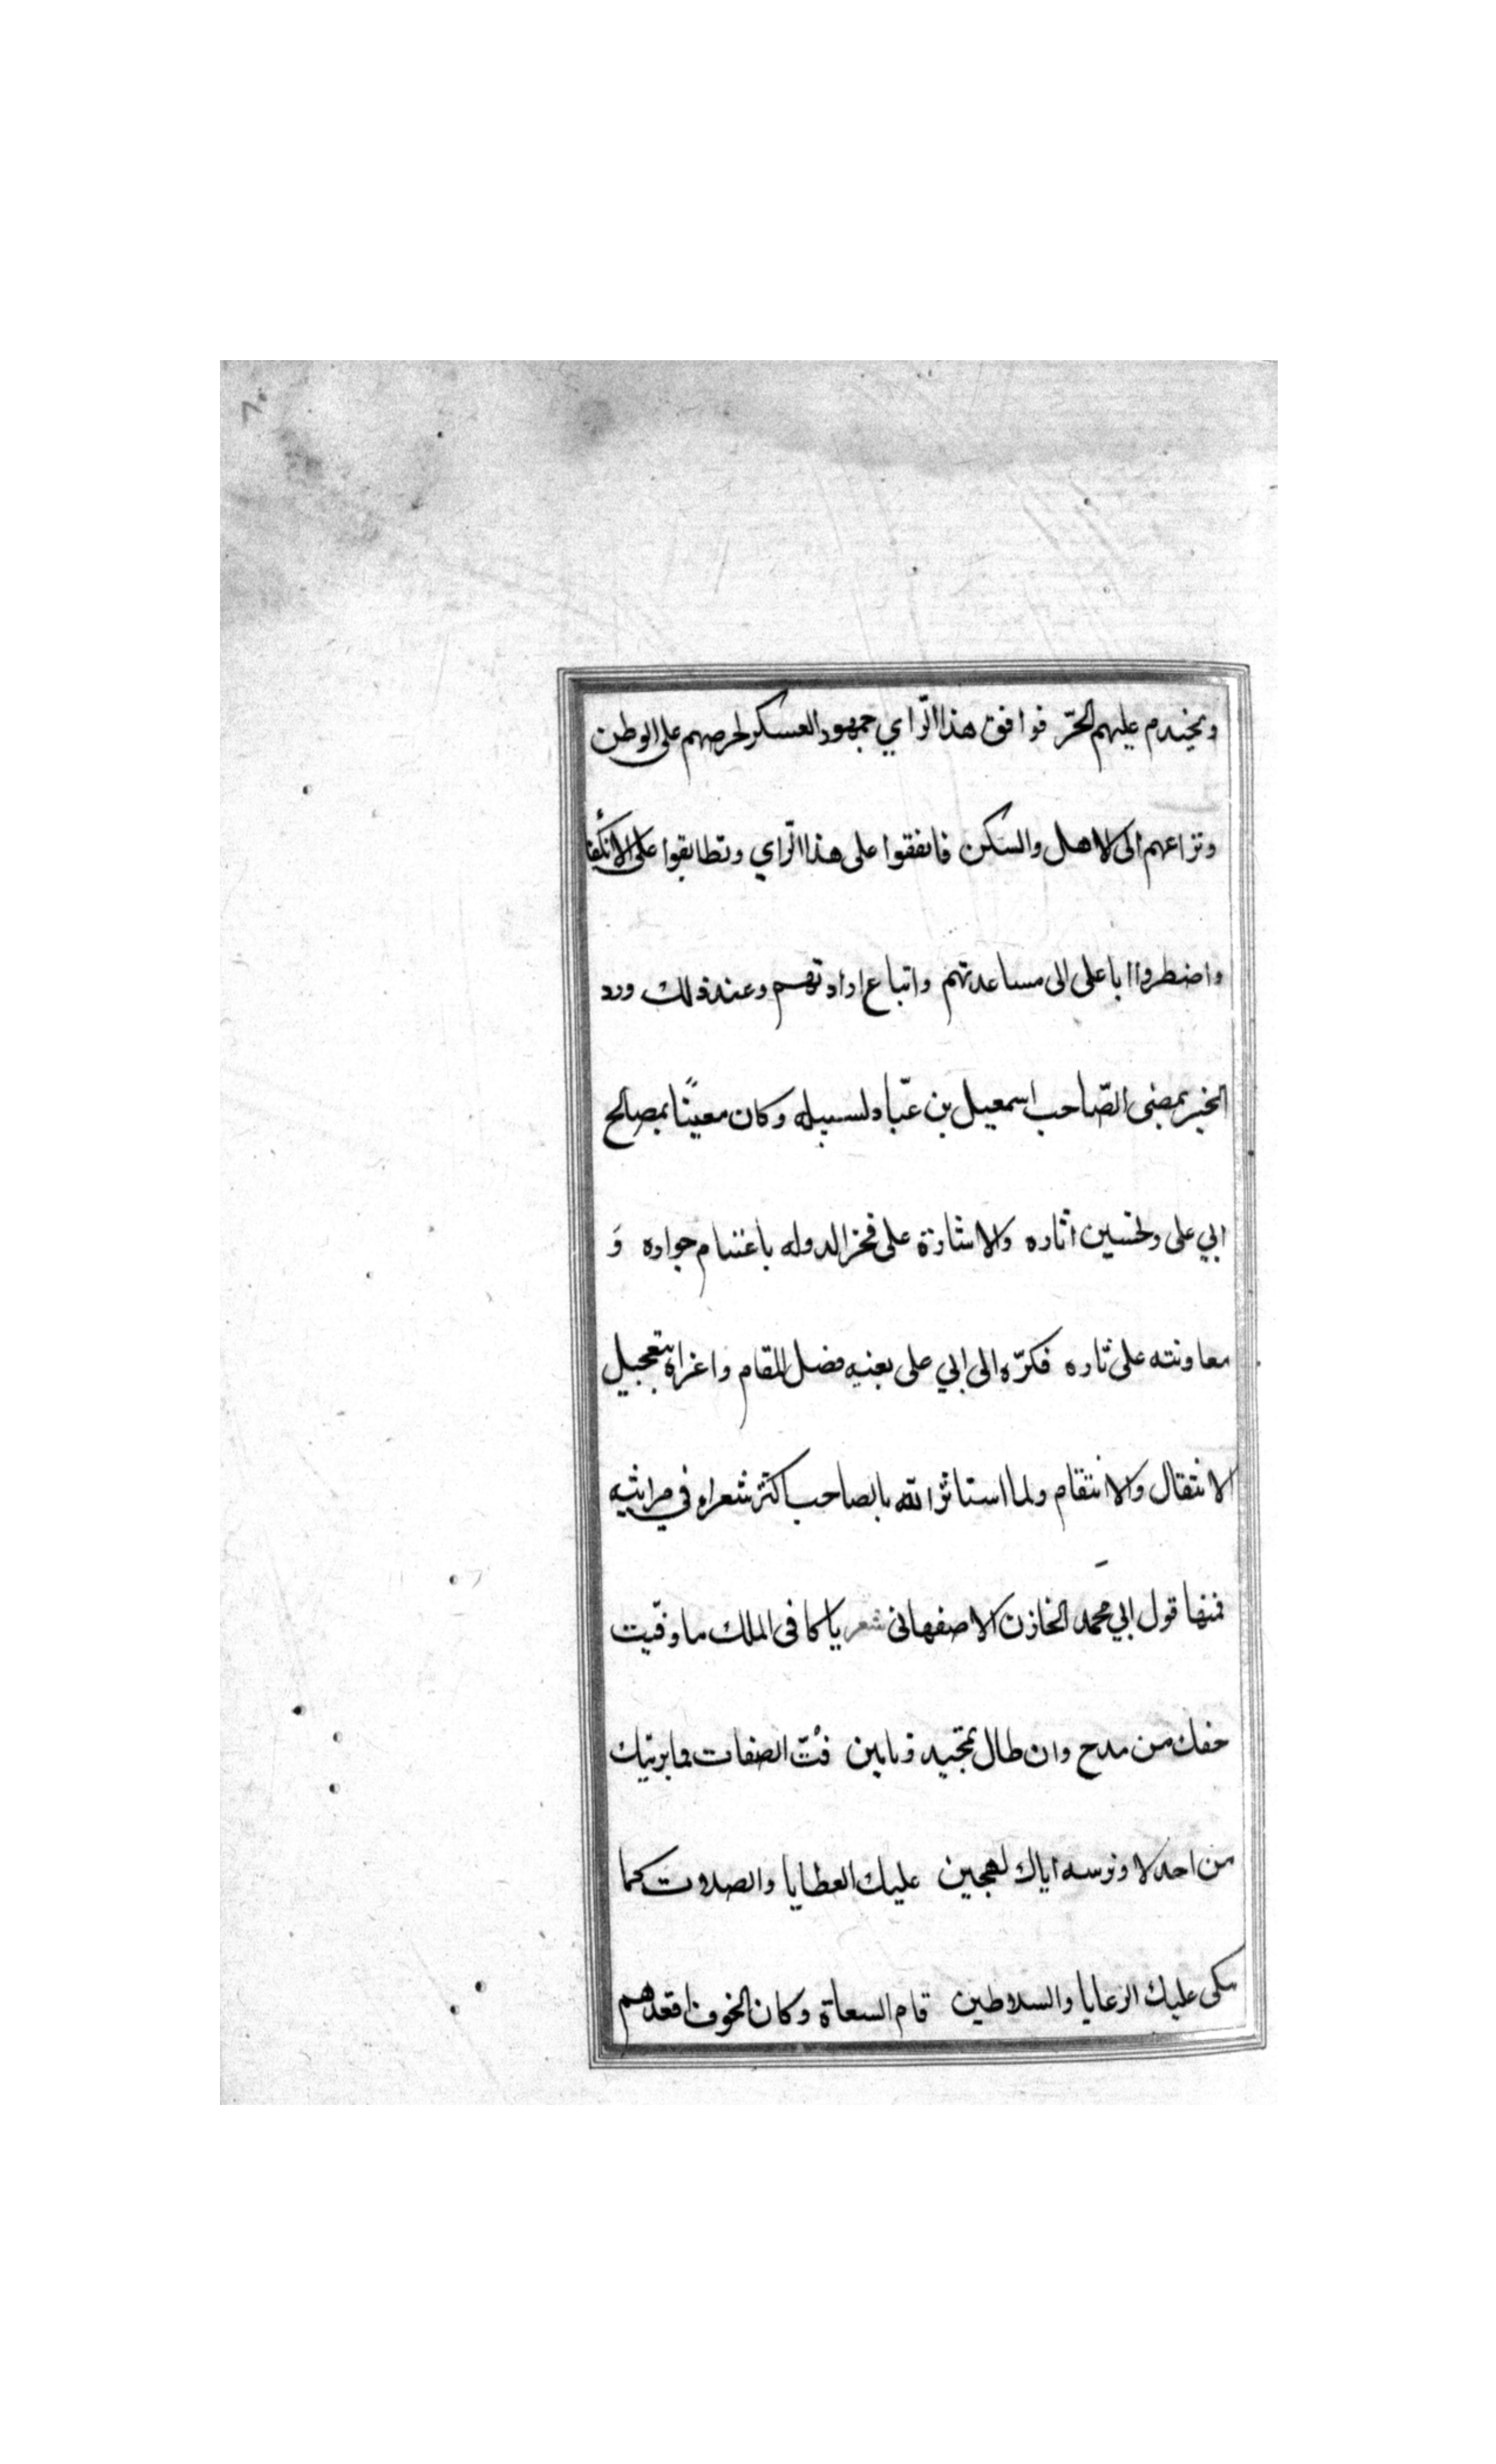 ويخيدم عليهم الحرّ فوافق هذا الرّاي جمهور العسكر لحرصهم على الوطن
ونزاعهم الى الاهل والسكن فاتفقوا على هذا الرّاي وتطابقوا على الانكفأ
واضطروا ابا على الى مساعدتهم واتباع ارادتهم وعند ذلك ورد
الخبر بمضى الصّاحب اسمعيل بن عبّاد لسبيله وكان معينًا بمصالح
ابي على وتحسين اثاره والاشارة على فخر الدوله باغتنام جواره وَ
معاونته على ثاره فكرّه الى ابي على بعنيه فضل المقام واغراه بتعجيل
الانتقال والانتقام ولما استاثر الله بالصاحب اكثر شعراه في مراثيه
فمنها قول ابي محمد الخازن الاصفهانى شعر يا كافى الملك ما وفّيت
حفك من مدح وان طال تمجيد وتابين فتّ الصفات فما يرثيك
من احد الا وتزسه اياك لهجين عليك العطايا والصلات كما
بكى عليك الرعايا والسلاطين قام السعاة وكان الخوف اقعدهم